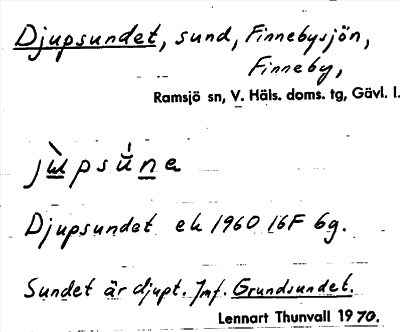 Djupsundet, sund, Finnebysjön,
Finneby,
Ramsjö sn, V. Häls. doms. tg, Gävl. l.
jùpsúne
Djupsundet ek 1960 16F 6g.
Sundet är djupt. Jmf. Grundsundet.
Lennart Thunvall 1970.